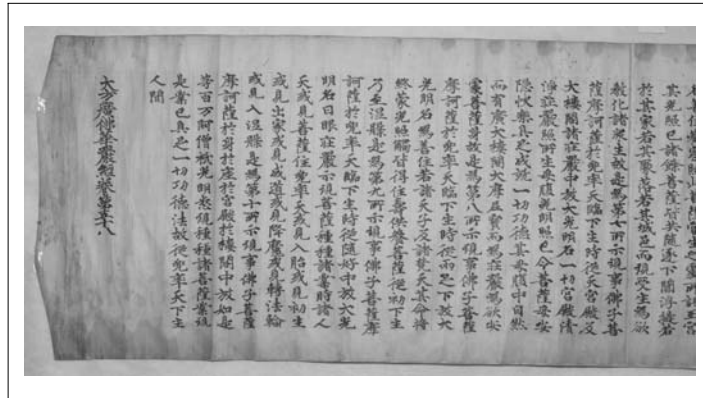 其光照已諸餘菩薩皆共隨逐下閻浮提若
於其家若其聚落若其城邑而現受生為欲
教化諸眾生故是為第七所示現事佛子菩
薩摩訶薩於兜率天臨下生時從天宮殿及
大樓閣諸莊嚴中放大光明名一切宮殿清
淨莊嚴照所生母腹光明照已令菩薩母安
隱快樂具足成就一切功德其母腹中自然
而有廣大樓閣大摩尼寶而為莊嚴為欲安
處菩薩身故是為第八所示現事佛子菩薩
摩訶薩於兜率天臨下生時從兩足下放大
光明名為善住若諸天子及諸梵天其命將
終蒙光照觸皆得住壽供養菩薩從初下生
乃至涅槃是為第九所示現事佛子菩薩摩
訶薩於兜率天臨下生時從隨好中放大光
明名曰眼莊嚴示現菩薩種種諸業時諸人
天或見菩薩住兜率天或見入胎或見初生
或見出家或見成道或見降魔或見轉法輪
或見入涅槃是為第十所示現事佛子菩薩
摩訶薩於身於座於宮殿於樓閣中放如是
等百万阿僧祇光明悉現種種諸菩薩業現
是業已具足一切功德法故從兜率天下生
人間
大方廣佛華嚴經卷第五十八